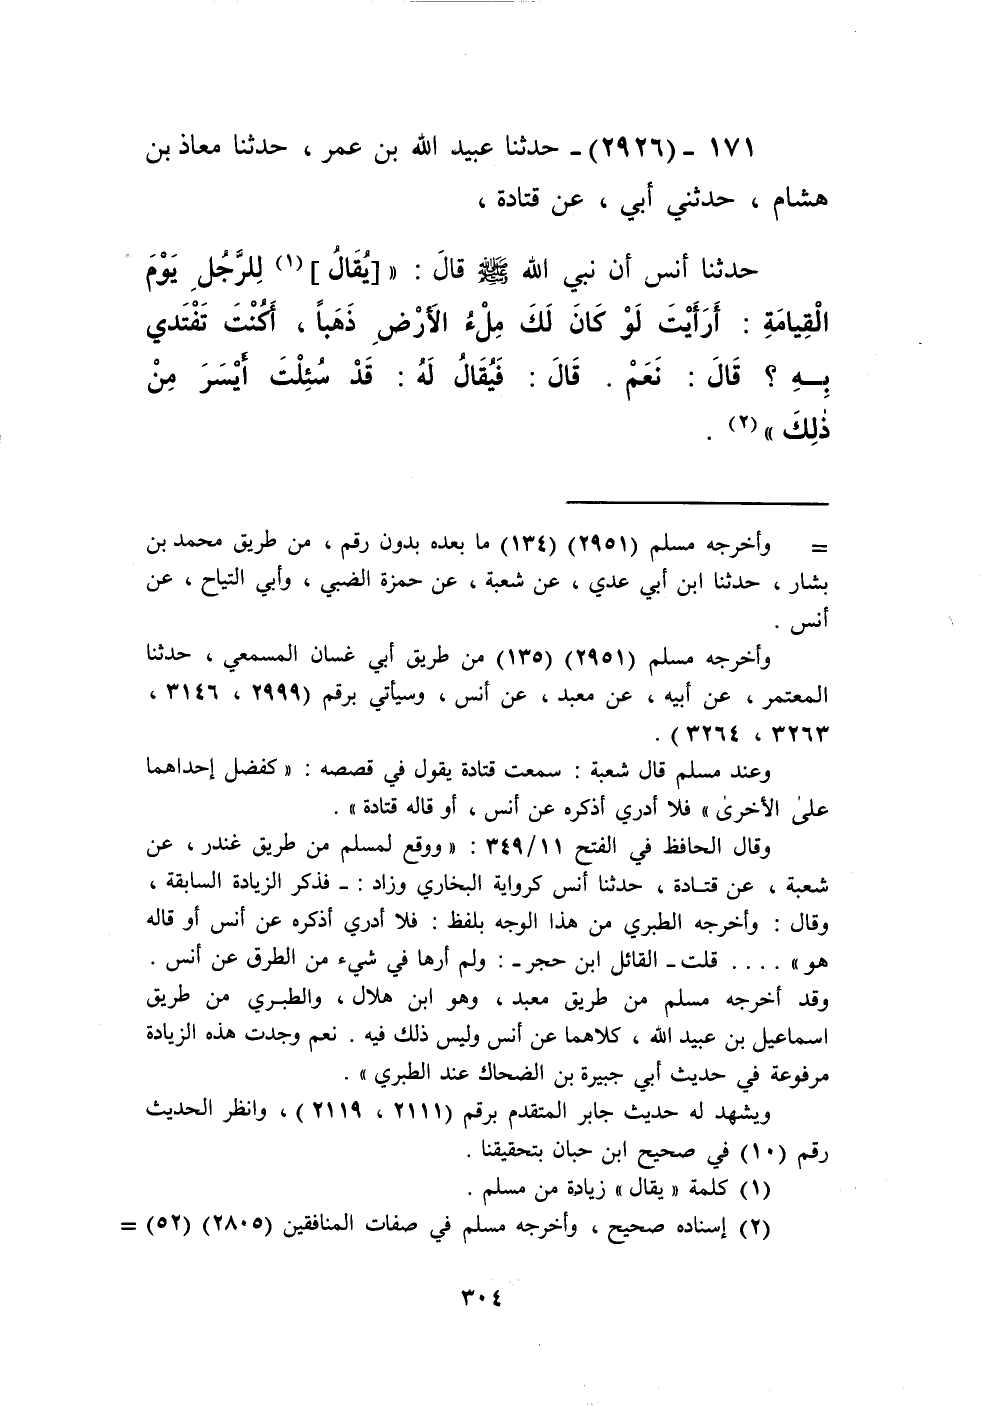 ١٧١ ـ (٢٩٢٦) ـ حدثنا عبيد الله بن عمر ، حدثنا معاذ بن
هشام ، حدثني أبي ، عن قتادة ،
حدثنا أنس أن نبي الله ﷺ قالَ : « [يُقَالُ] (١) لِلرَّجُلِ يَوْمَ
الْقِيامَةِ : أَرَأَيْتَ لَوْ كَانَ لَكَ مِلْءُ الأَرْضِ ذَهَباً ، أَكُنْتَ تَفْتَدي
بِهِ ؟ قَالَ : نَعَمْ . قَالَ : فَيُقَالُ لَهُ : قَدْ سُئِلْتَ أَيْسَرَ مِنْ
ذٰلِكَ » (٢) .
= وأخرجه مسلم (٢٩٥١) (١٣٤) ما بعده بدون رقم ، من طريق محمد بن
بشار ، حدثنا ابن أبي عدي ، عن شعبة ، عن حمزة الضبي ، وأبي التياح ، عن
أنس .
وأخرجه مسلم (٢٩٥١) (١٣٥) من طريق أبي غسان المسمعي ، حدثنا
المعتمر ، عن أبيه ، عن معبد ، عن أنس ، وسيأتي برقم (٢٩٩٩ ، ٣١٤٦ ،
٣٢٦٣ ، ٣٢٦٤ ) .
وعند مسلم قال شعبة : سمعت قتادة يقول في قصصه : « كفضل إحداهما
علىٰ الأخرىٰ » فلا أدري أذكره عن أنس ، أو قاله قتادة » .
وقال الحافظ في الفتح ٣٤٩/١١ : « ووقع لمسلم من طريق غندر ، عن
شعبة ، عن قتادة ، حدثنا أنس كرواية البخاري وزاد : ـ فذكر الزيادة السابقة ،
وقال : وأخرجه الطبري من هذا الوجه بلفظ : فلا أدري أذكره عن أنس أو قاله
هو » .... قلت ـ القائل ابن حجر ـ : ولم أرها في شيء من الطرق عن أنس .
وقد أخرجه مسلم من طريق معبد ، وهو ابن هلال ، والطبري من طريق
اسماعيل بن عبيد الله ، كلاهما عن أنس وليس ذلك فيه . نعم وجدت هذه الزيادة
مرفوعة في حديث أبي جبيرة بن الضحاك عند الطبري » .
ويشهد له حديث جابر المتقدم برقم (٢١١١ ، ٢١١٩ ) ، وانظر الحديث
رقم (١٠) في صحيح ابن حبان بتحقيقنا .
(١) كلمة « يقال » زيادة من مسلم .
(٢) إسناده صحيح ، وأخرجه مسلم في صفات المنافقين (٢٨٠٥) (٥٢) =
٣٠٤